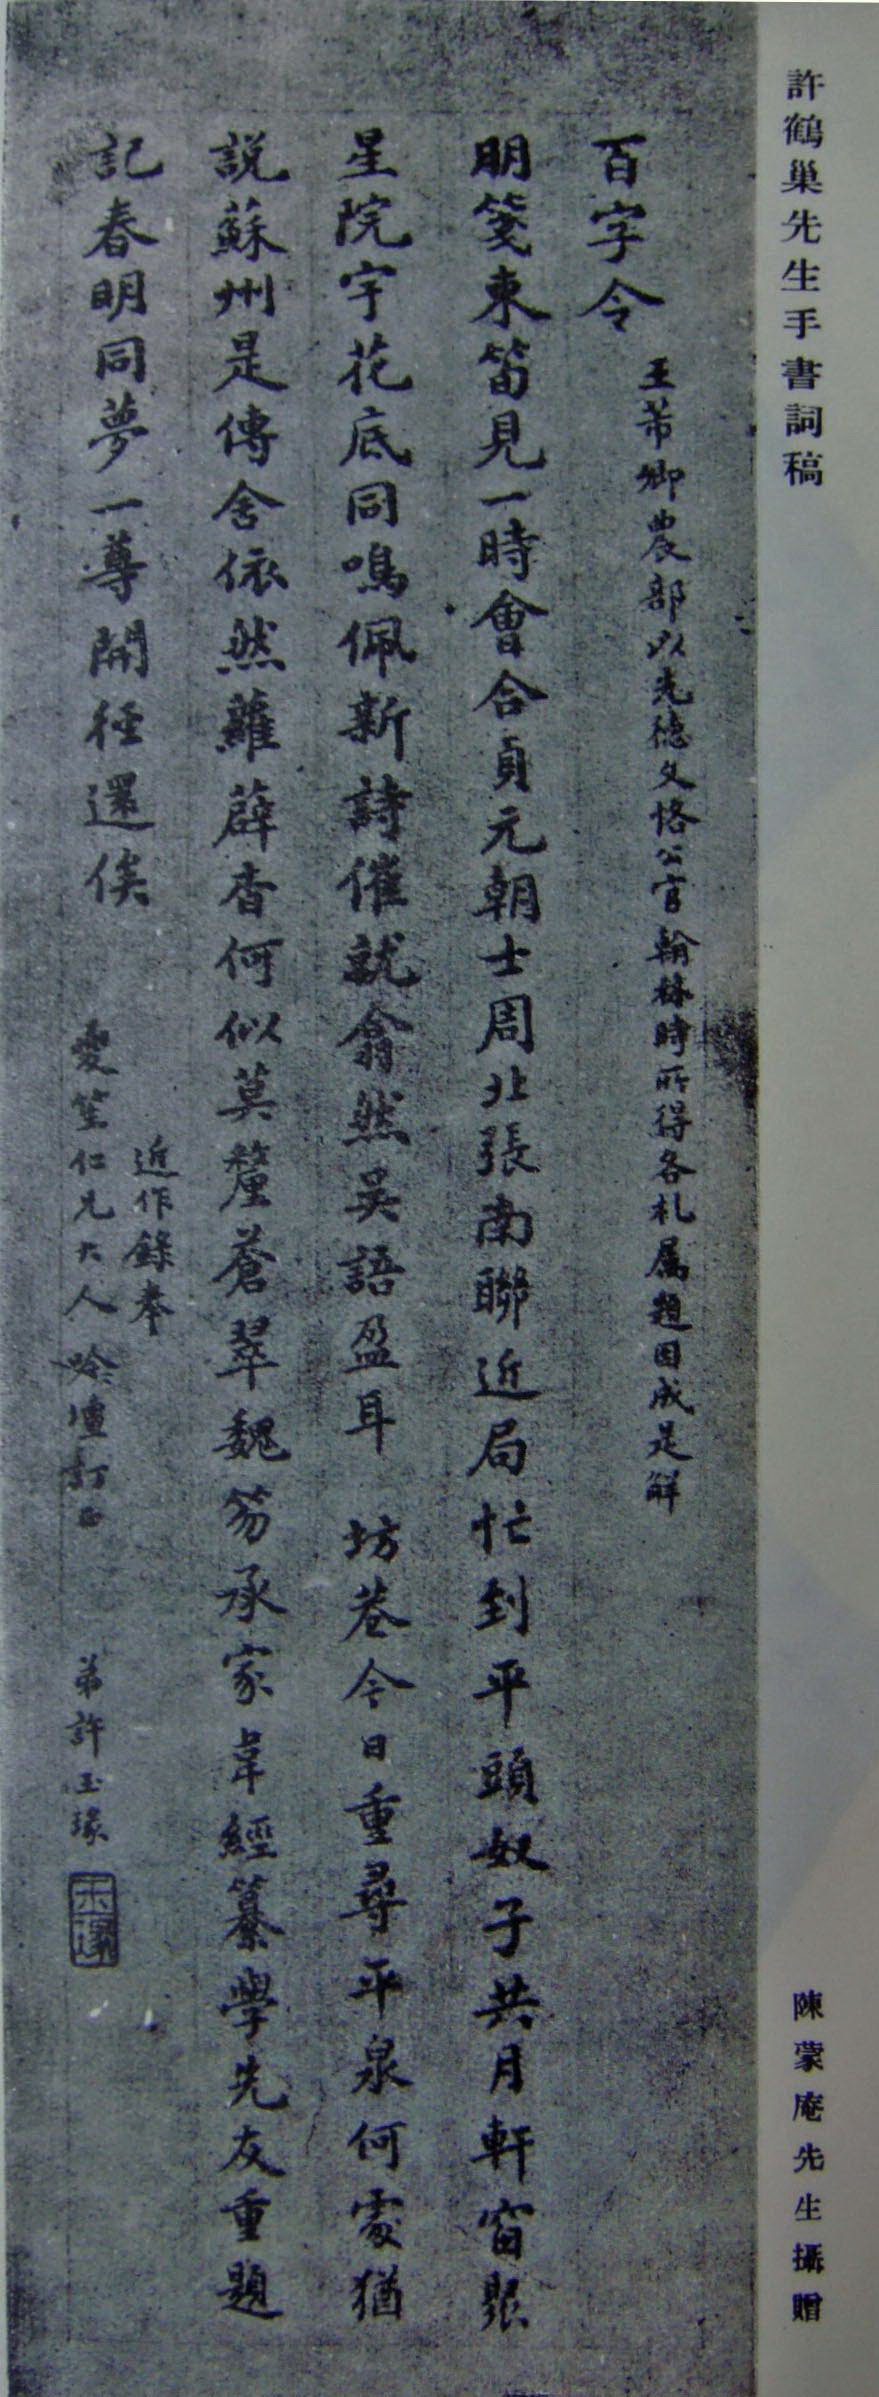 許鶴巢先生手書詞稿
陳蒙庵先生攝贈
百字令
王芾卿農部以先德文恪公官翰林時所得各札屬題因成是解
明箋東笛見一時會合貞元朝士周北張南聯近局忙到平頭奴子共月軒窗聚
星院宇花底同鳴佩新詩催就翕然吳語盈耳 坊巷今日重尋平泉何處猶
説蘇州是傳舍依然蘿薜杳何似莫釐蒼翠魏笏承家韋經纂學先友重題
記春明同夢一尊開徑還俟
近作錄奉
夔笙仁兄大人吟壇訂正
弟許玉瑑